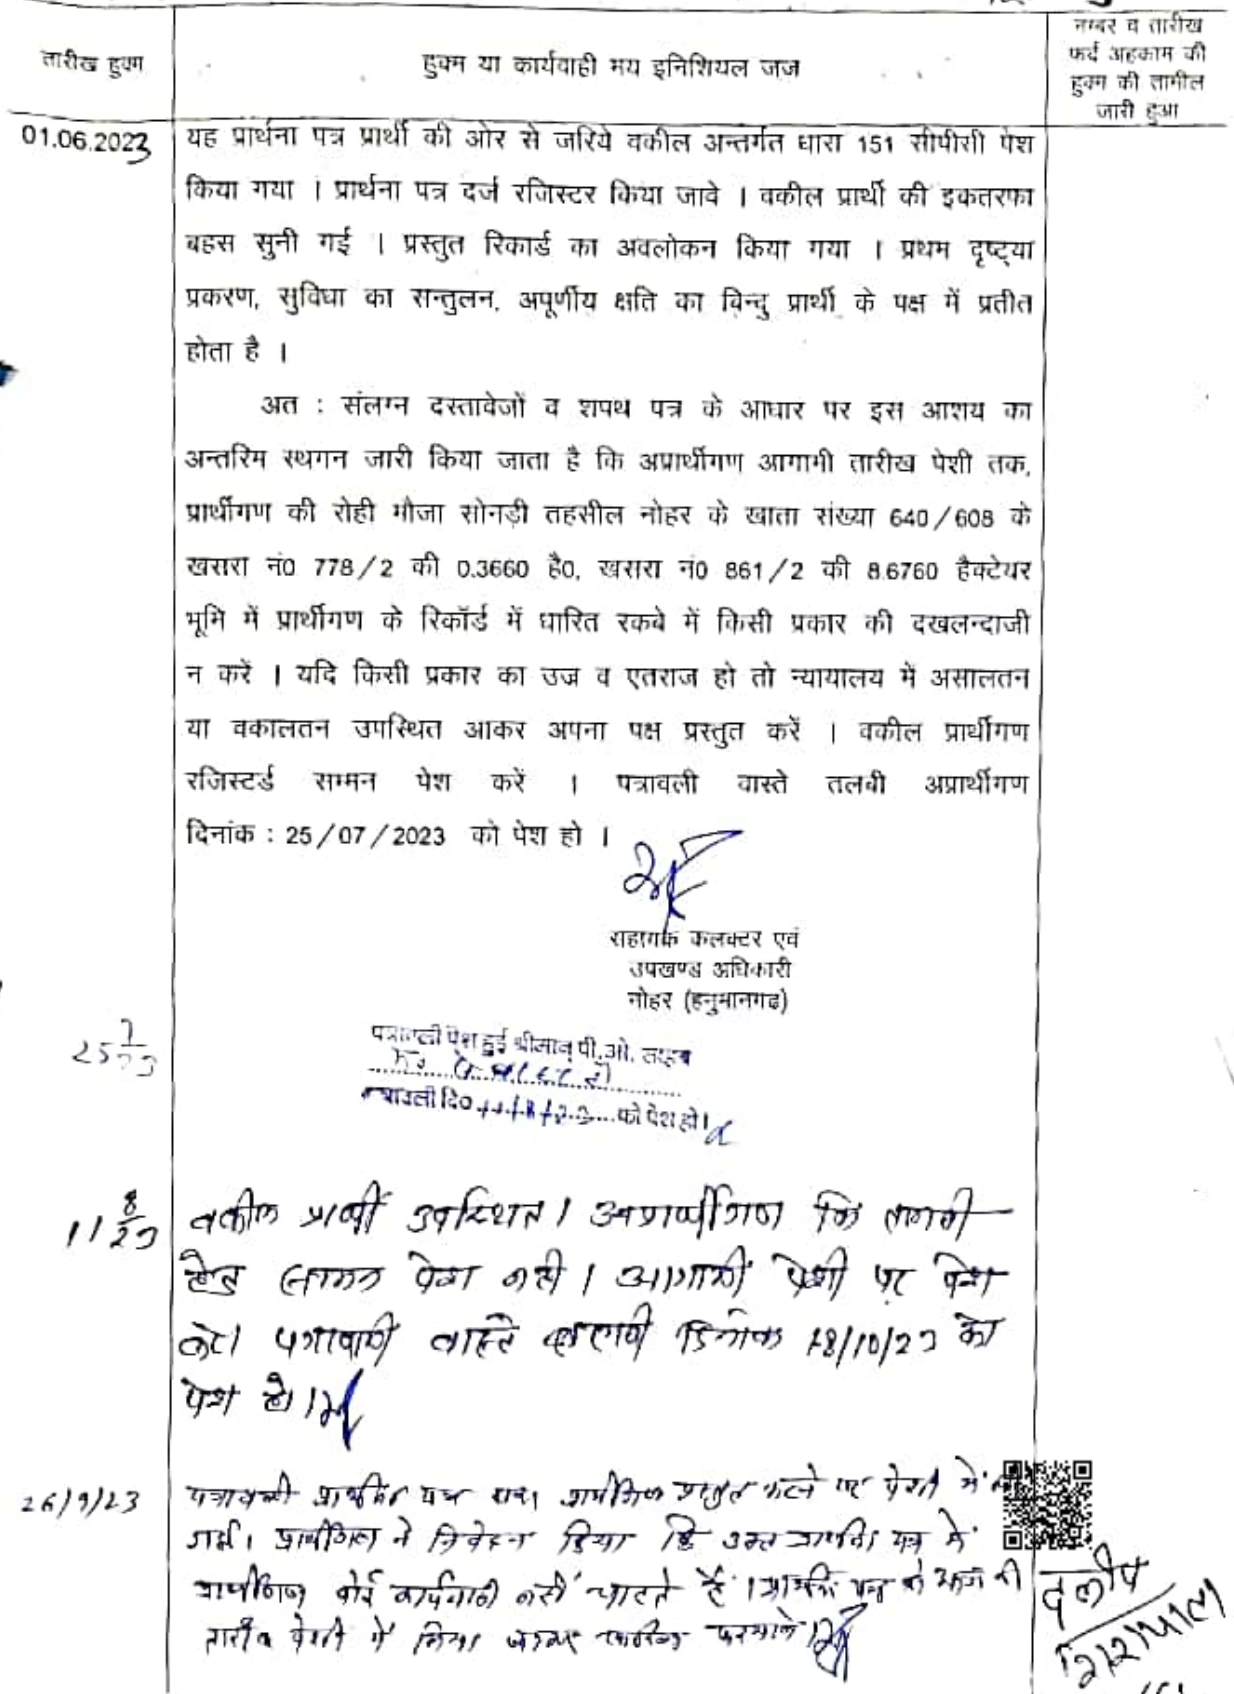 तारीख हुक्म
हुक्म या कार्यवाही मय इनिशियल जज
नम्बर व तारीख
फर्द अहकाम की
हुक्म की तामील
जारी हुआ
01.06.2023
यह प्रार्थना पत्र प्रार्थी की ओर से जरिये वकील अन्तर्गत धारा 151 सीपीसी पेश
किया गया । प्रार्थना पत्र दर्ज रजिस्टर किया जावे । वकील प्रार्थी की इकतरफा
बहस सुनी गई । प्रस्तुत रिकार्ड का अवलोकन किया गया । प्रथम दृष्ट्या
प्रकरण, सुविधा का सन्तुलन, अपूर्णीय क्षति का बिन्दु प्रार्थी के पक्ष में प्रतीत
होता है ।
अत : संलग्न दस्तावेजों व शपथ पत्र के आधार पर इस आशय का
अन्तरिम स्थगन जारी किया जाता है कि अप्रार्थीगण आगामी तारीख पेशी तक,
प्रार्थीगण की रोही मौजा सोनड़ी तहसील नोहर के खाता संख्या 640/608 के
खसरा नं0 778/2 की 0.3660 है0, खसरा नं0 861/2 की 8.6760 हैक्टेयर
भूमि में प्रार्थीगण के रिकॉर्ड में धारित रकबे में किसी प्रकार की दखलन्दाजी
न करें । यदि किसी प्रकार का उज्र व एतराज हो तो न्यायालय में असालतन
या वकालतन उपस्थित आकर अपना पक्ष प्रस्तुत करें । वकील प्रार्थीगण
रजिस्टर्ड सम्मन पेश करें । पत्रावली वास्ते तलबी अप्रार्थीगण
दिनांक : 25/07/2023 को पेश हो ।
सहायक कलक्टर एवं
उपखण्ड अधिकारी
नोहर (हनुमानगढ)
25 7/23
पत्रावली पेश हुई श्रीमान् पी.ओ. साहब
पत्रावली दि0 11/8/23 को पेश हो।
11 8/23
वकील प्रार्थी उपस्थित। अप्रार्थीगण कि तलबी
हेतु सम्मन पेश नही। आगामी पेशी पर पेश
करे। पत्रावली वास्ते तलबी दिनांक 18/10/23 को
पेश हो।
26/9/23
पत्रावली प्रार्थना पत्र प्रार्थीगण प्रस्तुत करने पर पेशी में ली
गई। प्रार्थीगण ने निवेदन किया कि उक्त प्रार्थना पत्र में
प्रार्थीगण कोई कार्यवाही नहीं चाहते है। प्रार्थना पत्र को आज की
तारीख पेशी में लिया जाकर खारिज फरमावे।
दलीप